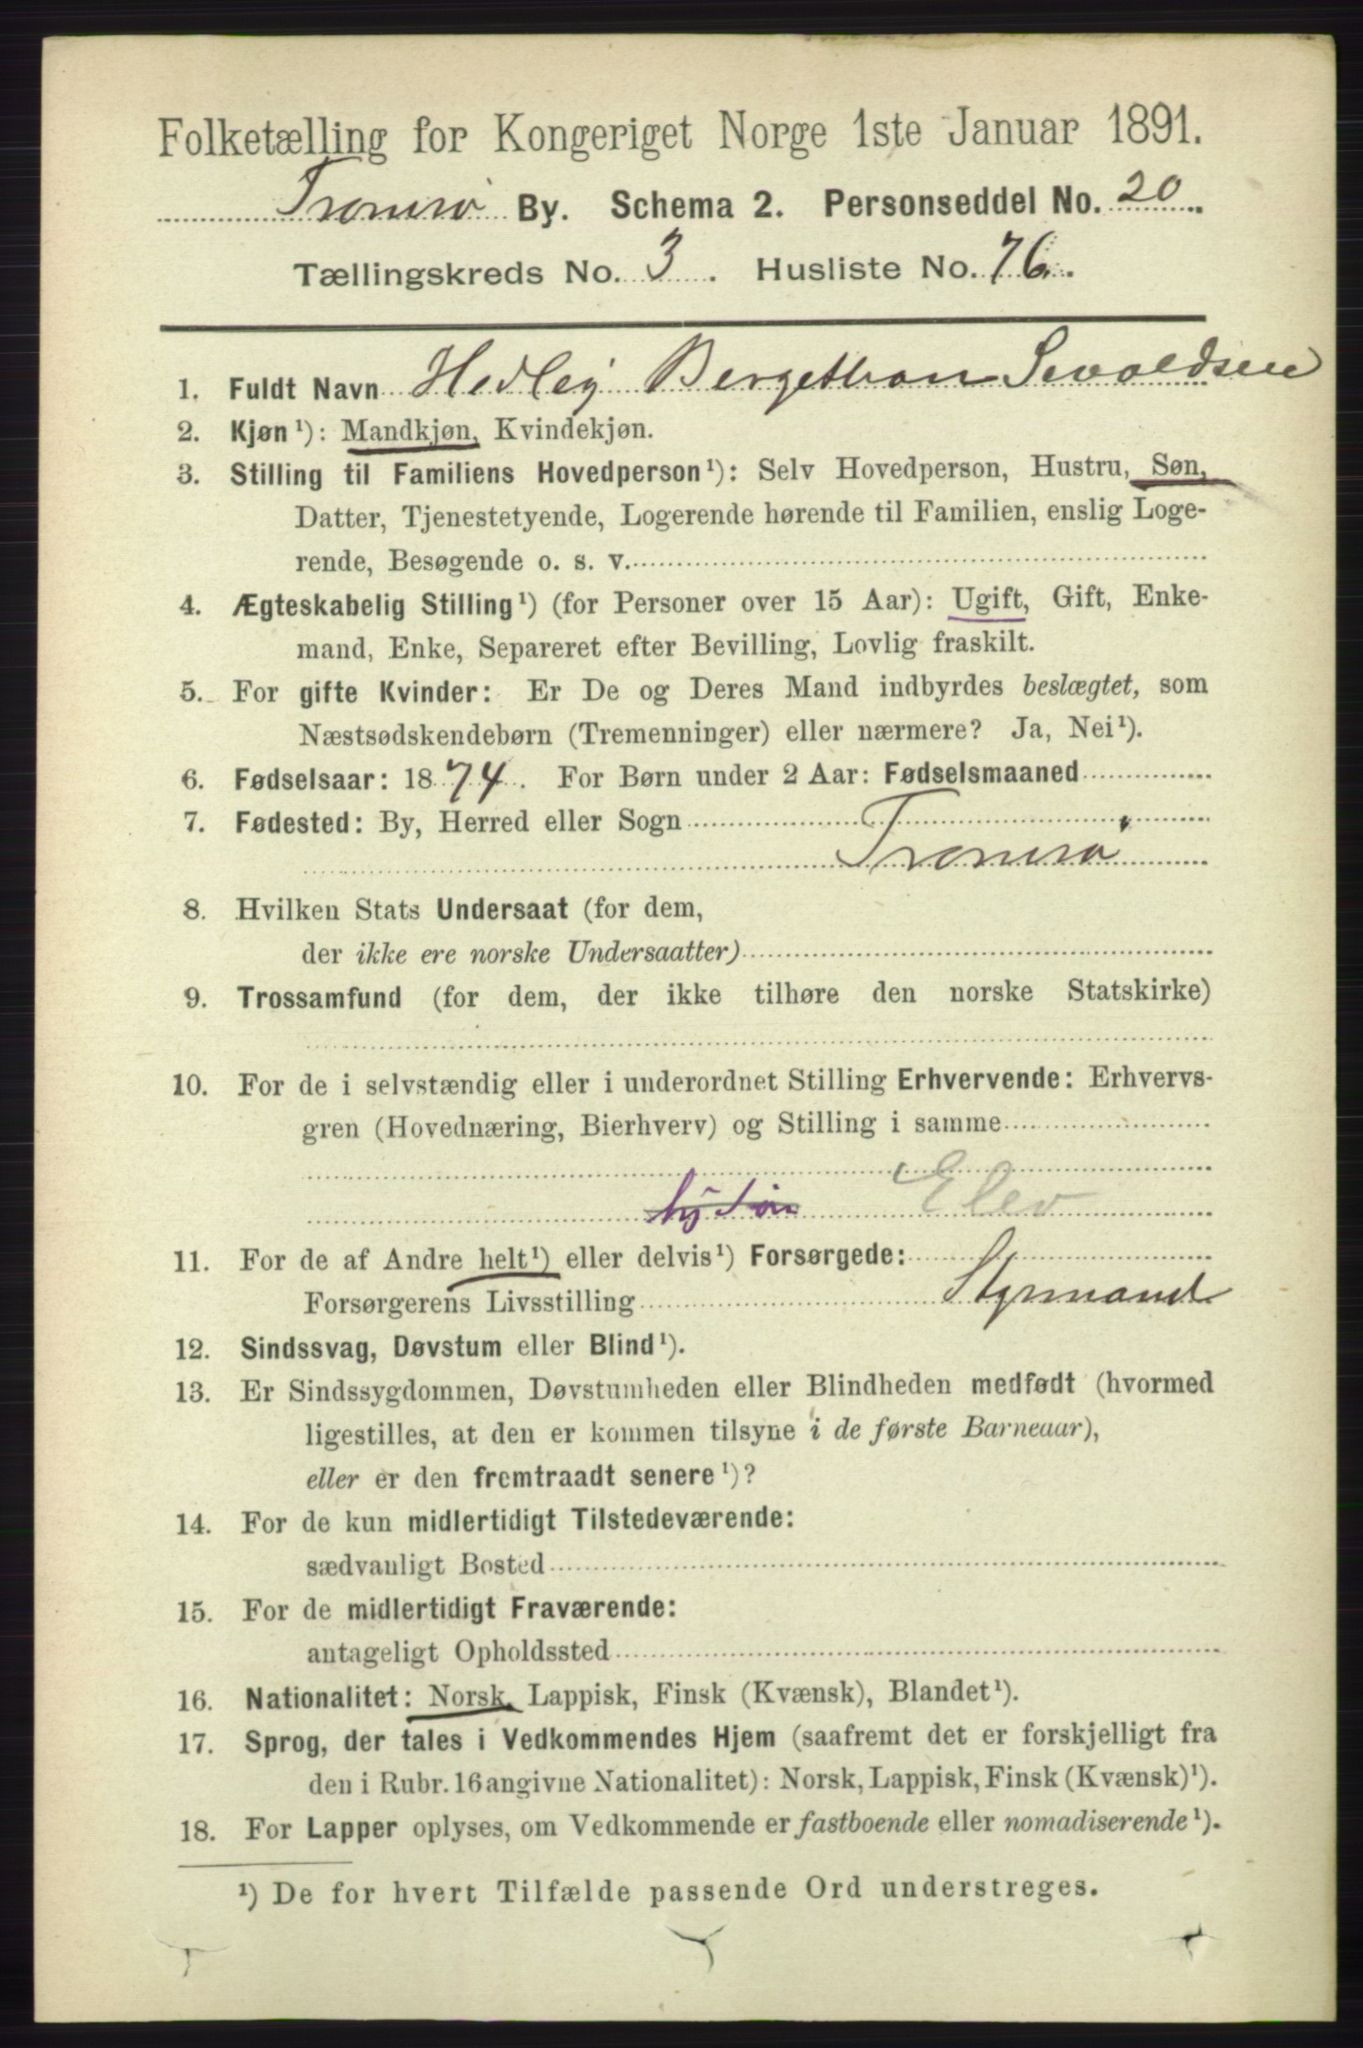 Folketælling for Kongeriget Norge 1ste Januar 1891.
Tromsø By. Schema 2. Personseddel No. 20
Tællingskreds No. 3. Husliste No. 76.
1. Fuldt Navn Hedley Bergethon Sevaldsen
2. Kjøn¹): Mandkjøn, Kvindekjøn.
3. Stilling til Familiens Hovedperson¹): Selv Hovedperson, Hustru, Søn,
Datter, Tjenestetyende, Logerende hørende til Familien, enslig Loge-
rende, Besøgende o. s. v.
4. Ægteskabelig Stilling¹) (for Personer over 15 Aar): Ugift, Gift, Enke-
mand, Enke, Separeret efter Bevilling, Lovlig fraskilt.
5. For gifte Kvinder: Er De og Deres Mand indbyrdes beslægtet, som
Næstsødskendebørn (Tremenninger) eller nærmere? Ja, Nei¹).
6. Fødselsaar: 1874. For Børn under 2 Aar: Fødselsmaaned
7. Fødested: By, Herred eller Sogn
Tromsø
8. Hvilken Stats Undersaat (for dem,
der ikke ere norske Undersaatter)
9. Trossamfund (for dem, der ikke tilhøre den norske Statskirke)
10. For de i selvstændig eller i underordnet Stilling Erhvervende: Erhvervs-
gren (Hovednæring, Bierhverv) og Stilling i samme
Elev
11. For de af Andre helt¹) eller delvis¹) Forsørgede:
Forsørgerens Livsstilling Styrmand
12. Sindssvag, Døvstum eller Blind¹).
13. Er Sindssygdommen, Døvstumheden eller Blindheden medfødt (hvormed
ligestilles, at den er kommen tilsyne i de første Barneaar),
eller er den fremtraadt senere¹)?
14. For de kun midlertidigt Tilstedeværende:
sædvanligt Bosted
15. For de midlertidigt Fraværende:
antageligt Opholdssted
16. Nationalitet: Norsk, Lappisk, Finsk (Kvænsk), Blandet¹).
17. Sprog, der tales i Vedkommendes Hjem (saafremt det er forskjelligt fra
den i Rubr. 16 angivne Nationalitet): Norsk, Lappisk, Finsk (Kvænsk)¹).
18. For Lapper oplyses, om Vedkommende er fastboende eller nomadiserende¹).
¹) De for hvert Tilfælde passende Ord understreges.